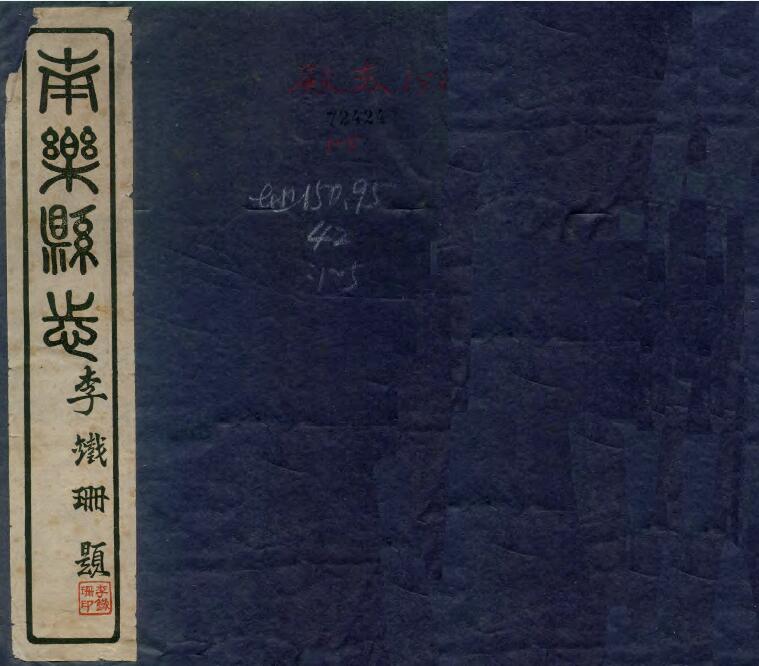 南樂縣志
李鐵珊題
李鐵珊印
72424
150.95
42
:1~5